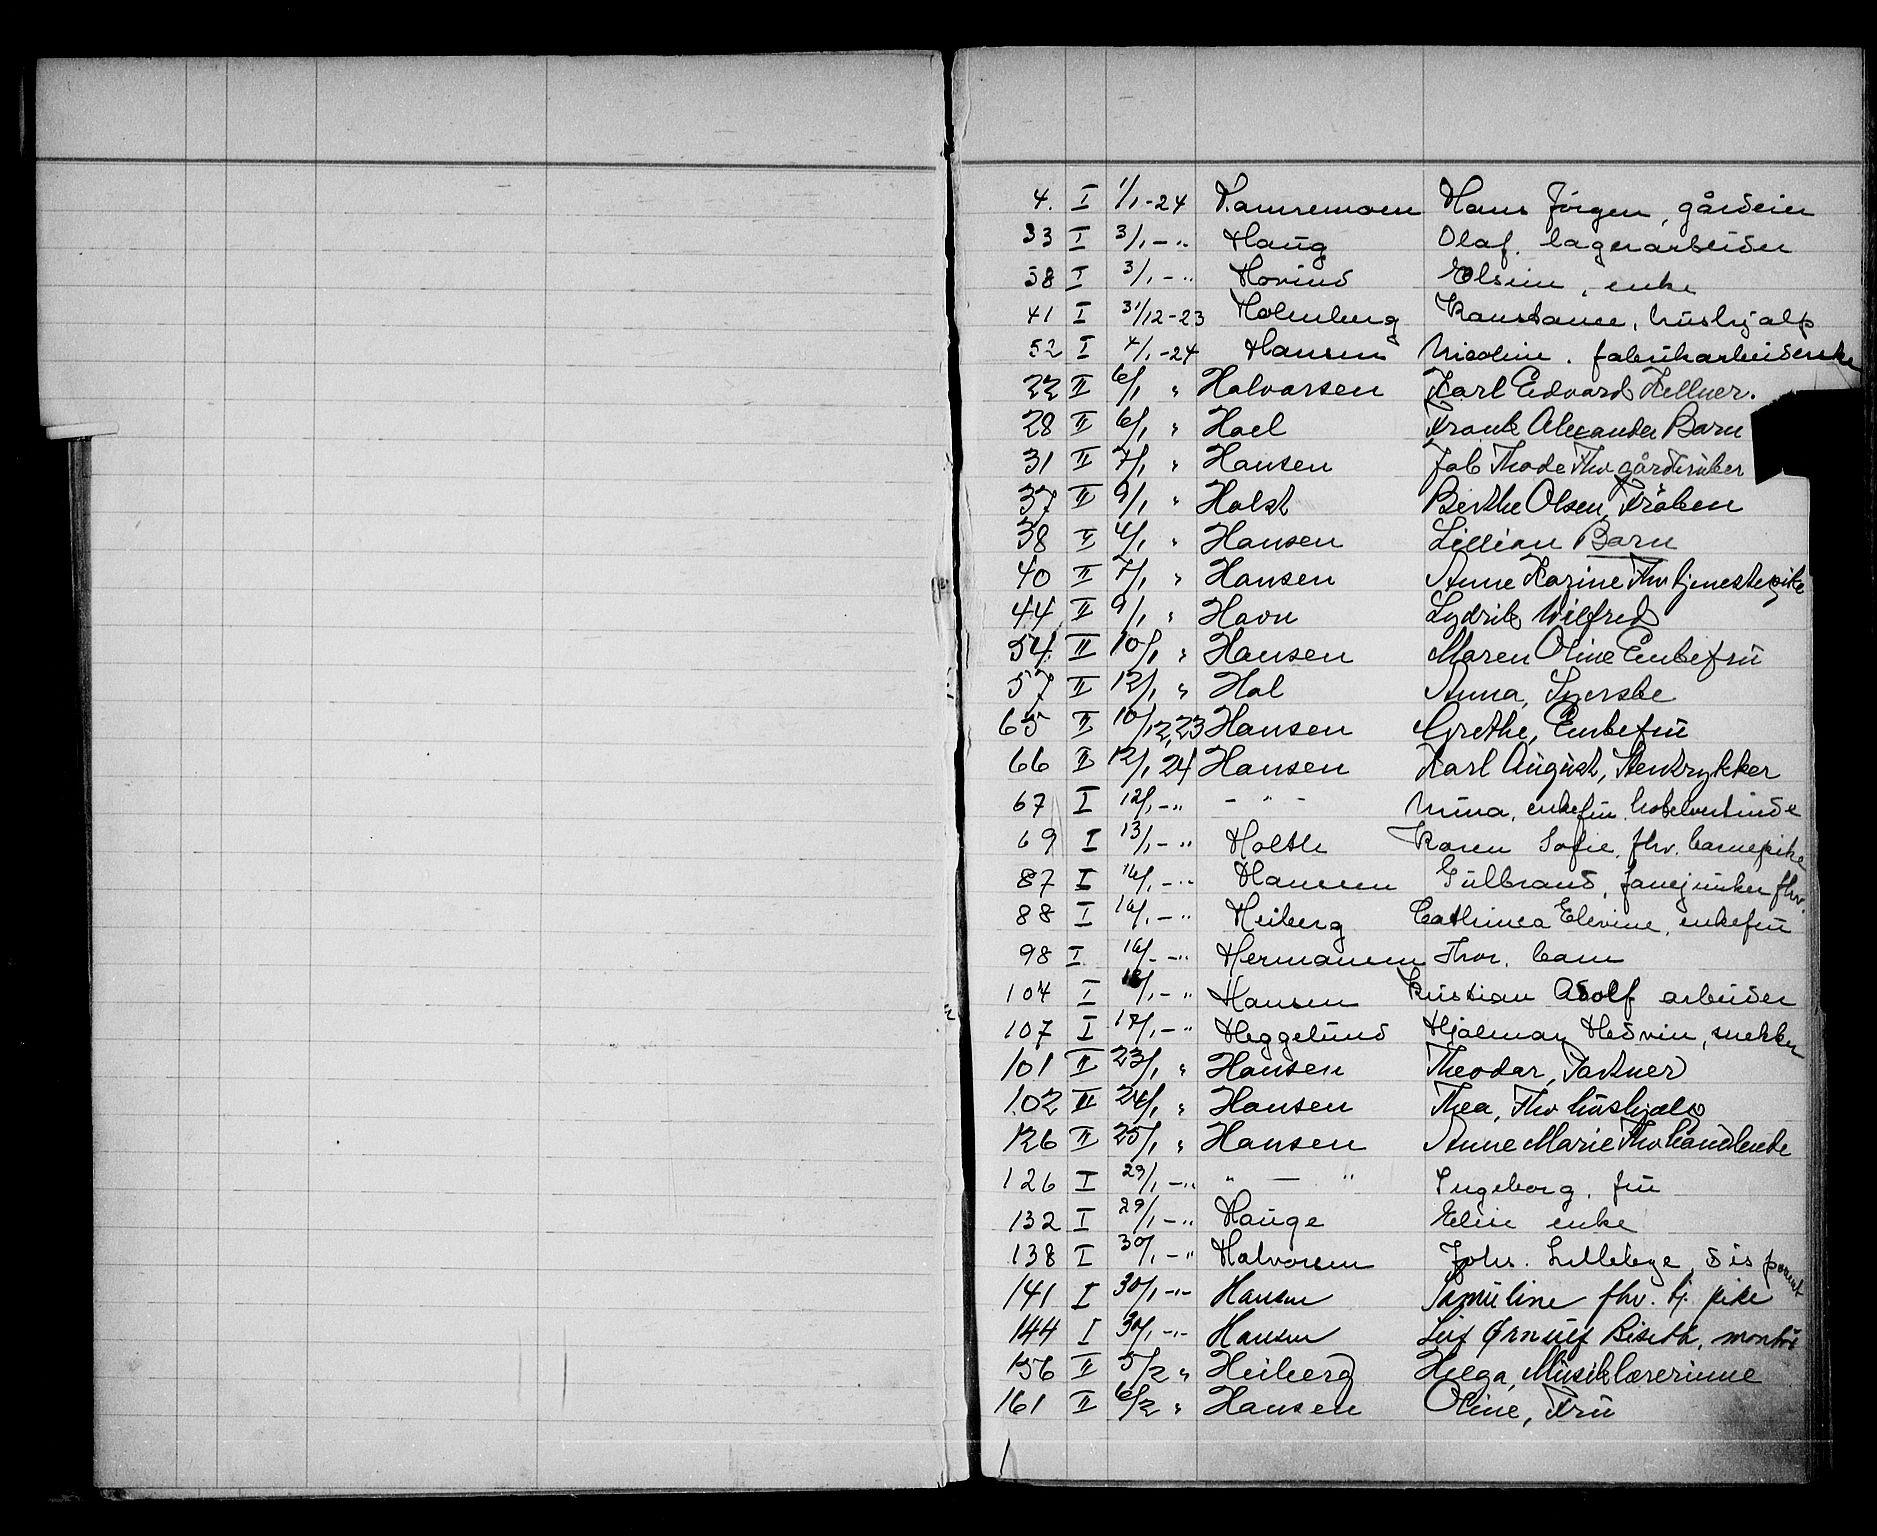 4. I 1/1-24 Hans Jörgen, gårdeier
33 I 3/1 - " Haug Olaf. lagerarbeider
38 I 3/1 - " Hovind enke
41 I 31/12-23 Holmberg Konstanse, hushjalp
52 I 4/1-24 Hansen Nicoline. fabrikarbeiderske
22 II 6/1 " Halvorsen Karl Edvard Kellner.
28 II 6/1 " Hoel Frank Alexander Barn
31 II 7/1 " Hansen Jab Thode Fhv gårdbruker
37 II 9/1 " Holst Berthe Olsen, Fröken
38 II 4/1 " Hansen Lillian Barn
40 II 7/1 " Hansen Anne Karine Fhv tjenestepike
44 II 9/1 " Havn Lydrik Wilfred
54 II 10/1 " Hansen Maren Oline Enkefru
57 II 12/1 " Hol Anna, Syerske
65 II 10/12, 23 Hansen Grethe, Enkefru
66 II 12/1 24 Hansen Karl August, Stentrykker
67 I 12/1 - " - " - Nina, enkefru, hotelvertinde
69 I 13/1 - " Holth Karen Sofie, fhv. barnepike
87 I 16/1 - " Hansen Gulbrand, fanejunker fhv.
88 I 16/1 - " Heiberg Cathinca Elevine, enkefru
98 I 16/1 - " Hermansen Thor, barn
104 I 18/1 - " Hansen Kristian Adolf arbeider
107 I 17/1 - " Heggelund Hjalmar Hedvin, snekker
101 II 23/1 " Hansen Theodor, Partner
102 II 24/1 " Hansen Thea, Fhv hushjælp
126 II 25/1 " Hansen Anne Marie Fhv handlende
126 I 29/1 - " " — " Ingeborg. fru
132 I 29/1 - " Hauge Elin enke
138 I 30/1 - " Halvorsen Johs. Lilleberge, disponent
141 I 30/1 - " - Hansen Samuline fhv. tj. pike
144 I 30/1 - " - Hansen Leif Ørnulf Biseth, montør
156 II 5/2 " Heiberg Helga, Musiklærerinne
161 II 6/2 " Hansen Oline, Fru